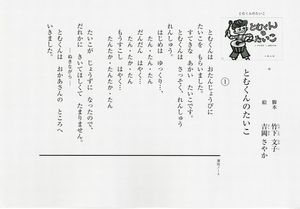 とむくんのたいこ
とむくんのたいこ
脚本 竹下 文子
絵 吉岡 さやか
①
とむくんは おたんじょうびに
たいこを もらいました。
すてきな あかい たいこです。
とむくんは さっそく、れんしゅう
はじめは ゆっくり…。
たん・たん・たん・たん
だんだん はやく…
たんたか・たん・たん
もうすこし はやく…
たんたか・たか・たん
たいこが じょうずに なったので、
だれかに きいてほしくて たまりません。
とむくんは おかあさんの ところへ
いきました。